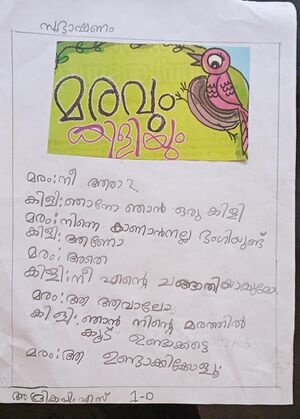 സംഭാഷണം
മരവും
കിളിയും
മരം: നീ ആരാ?
കിളി: ഞാനോ ഞാൻ ഒരു കിളി
മരം: നിന്നെ കാണാൻനല്ല ഭംഗിയുണ്ട്
കിളി: ആണോ
മരം: അതെ
കിളി: നീ എന്റെ ചങ്ങാതിയാകുമോ
മരം: ആ ആവാലോ
കിളി: ഞാൻ നിന്റെ മരത്തിൽ
കൂട് ഉണ്ടാക്കട്ടെ
മരം: ആ ഉണ്ടാക്കിക്കോളൂ
1-0